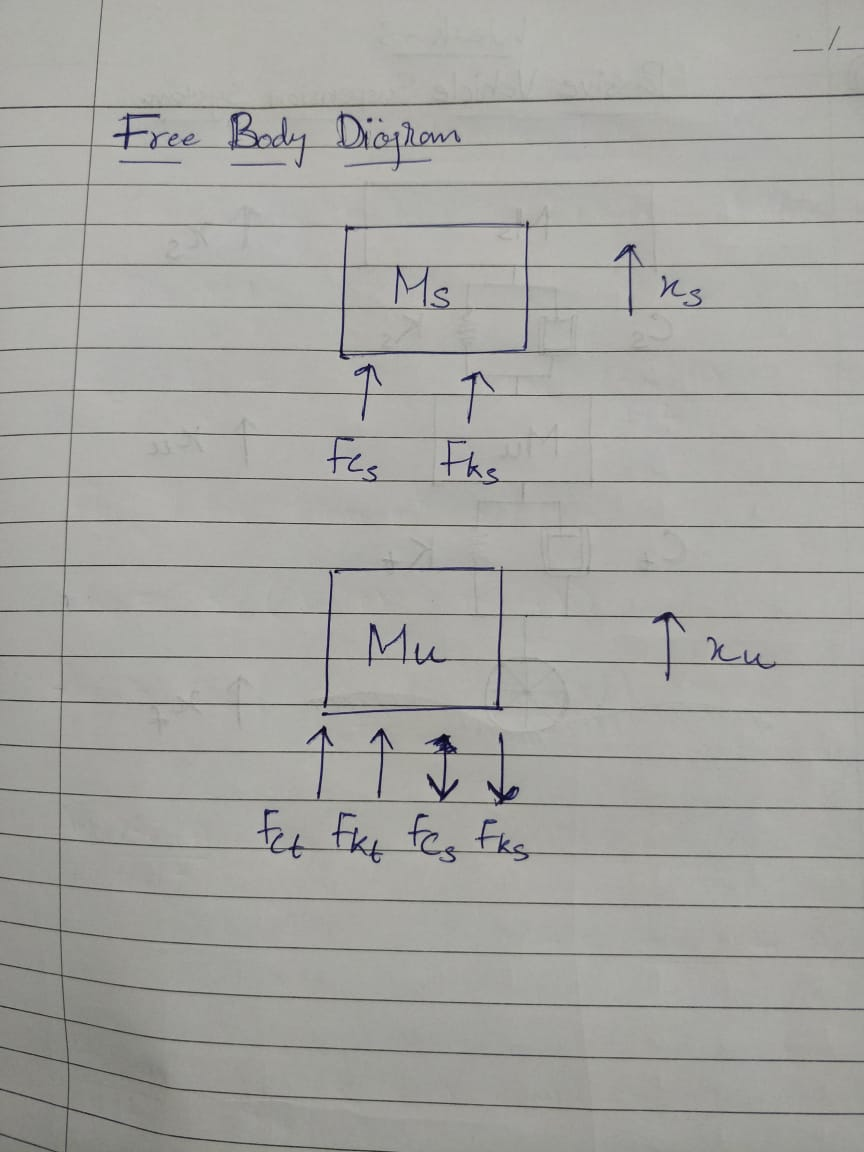 Free Body Diagram
Ms
xs
Fcs Fks
Mu
xu
Fct Fkt Fcs Fks